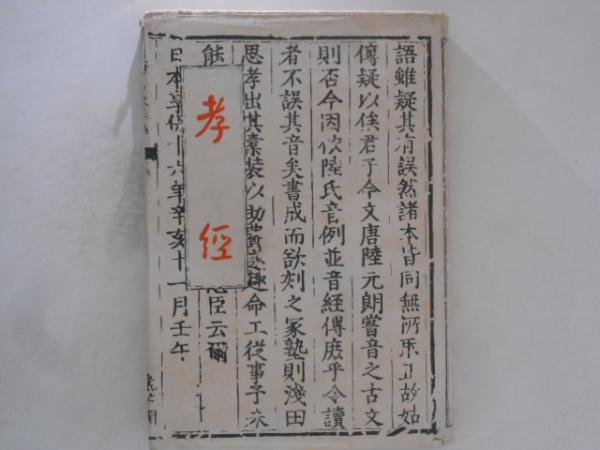 語雖疑其有誤然諸本皆同無所取正故姑
傳疑以俟君子今文唐陸元朗嘗音之古文
則否今因依陸氏音例並音經傳庶乎令讀
者不誤其音矣書成而欲刻之家塾則淺田
思孝出其素裝以助費遂趣命工從事予未
能
臣云爾
日本享保十六年辛亥十一月壬午
孝經